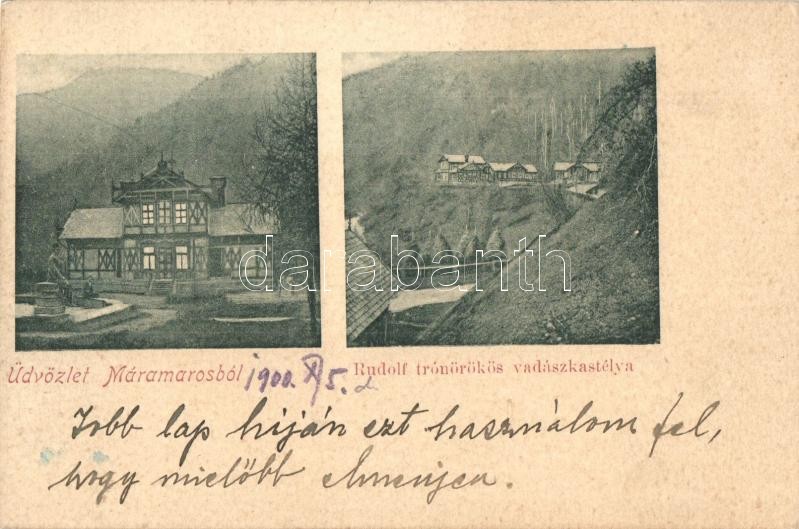 darabanth
Üdvözlet Máramarosból
1900. X/5.
Rudolf trónörökös vadászkastélya
Jobb lap híján ezt használom fel,
hogy mielőbb elmenjen.